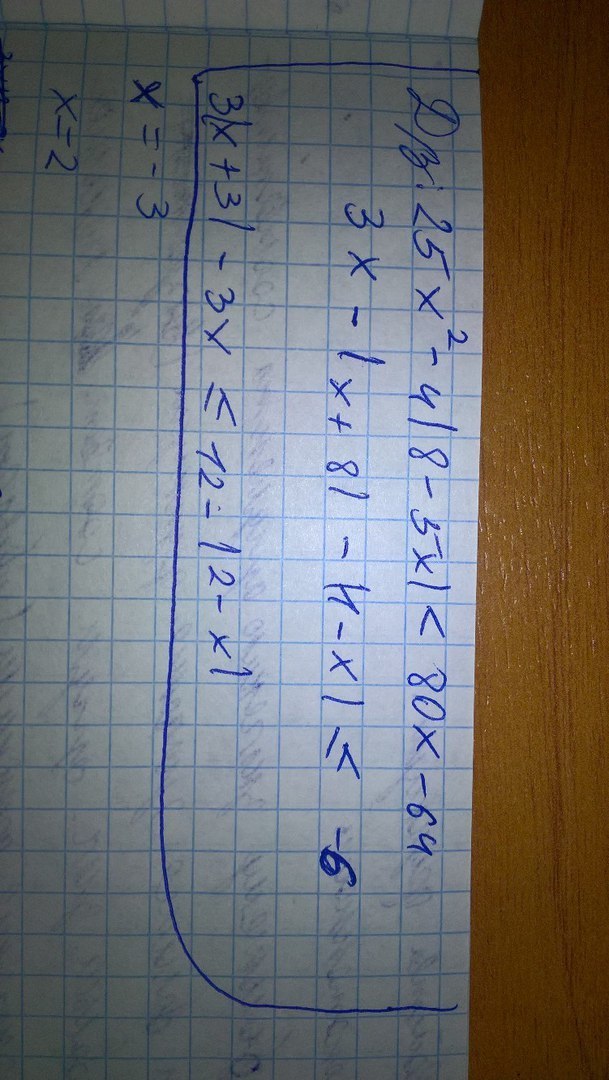 Д/з: 25x² - 4|8 - 5x| < 80x - 64
3x - |x + 8| - |1 - x| ≤ -6
3|x + 3| - 3x ≤ 12 - |2 - x|
x = -3
x = 2